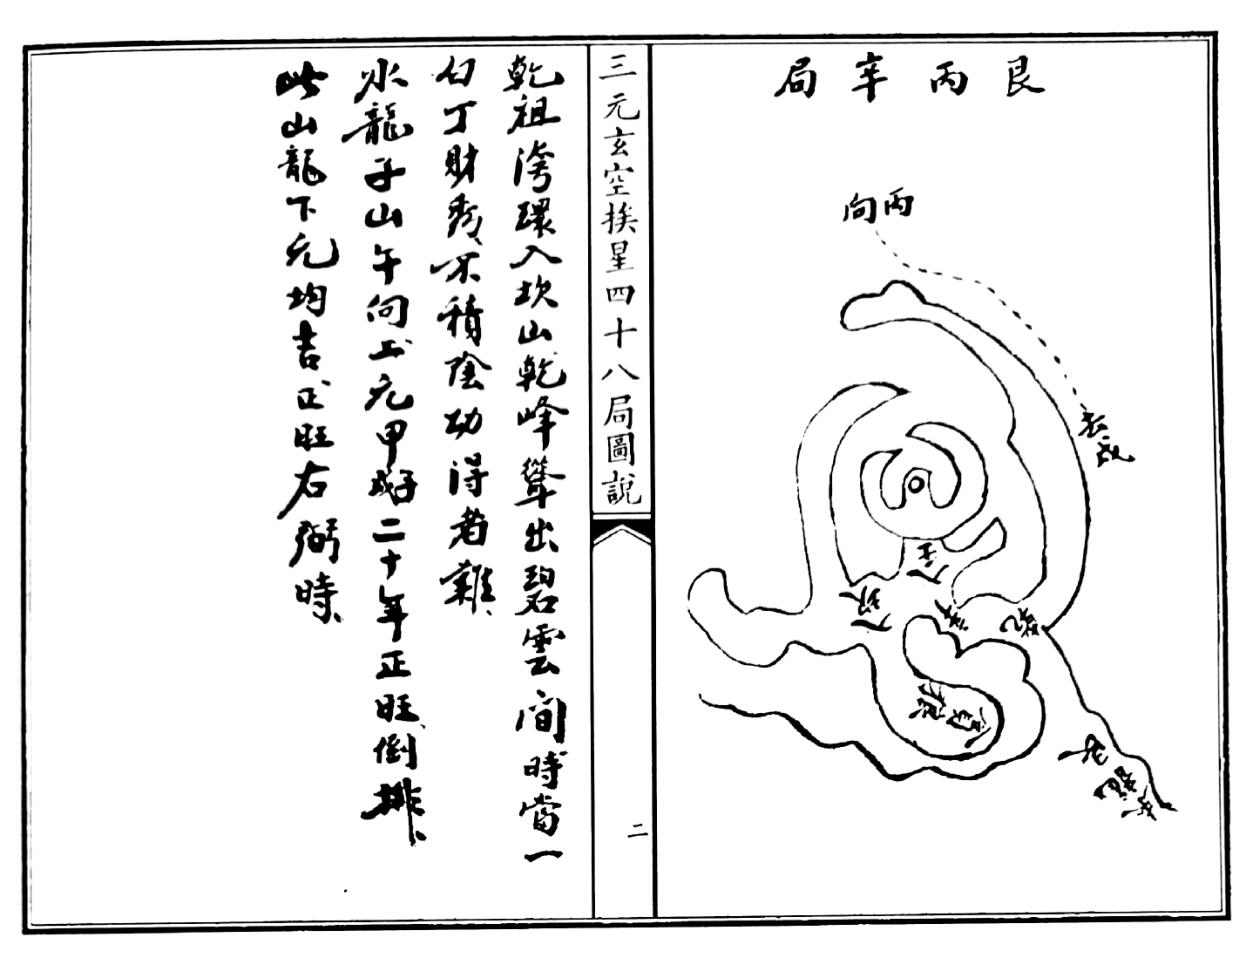 艮丙辛局
丙向
去
三元玄空挨星四十八局圖說
二
乾祖灣環入坎山乾峰聳出碧雲間時當一
白丁財秀不積陰功得者難
水龍子山午向上元甲子二十年正旺倒排
此山龍下元均吉正旺右弼時